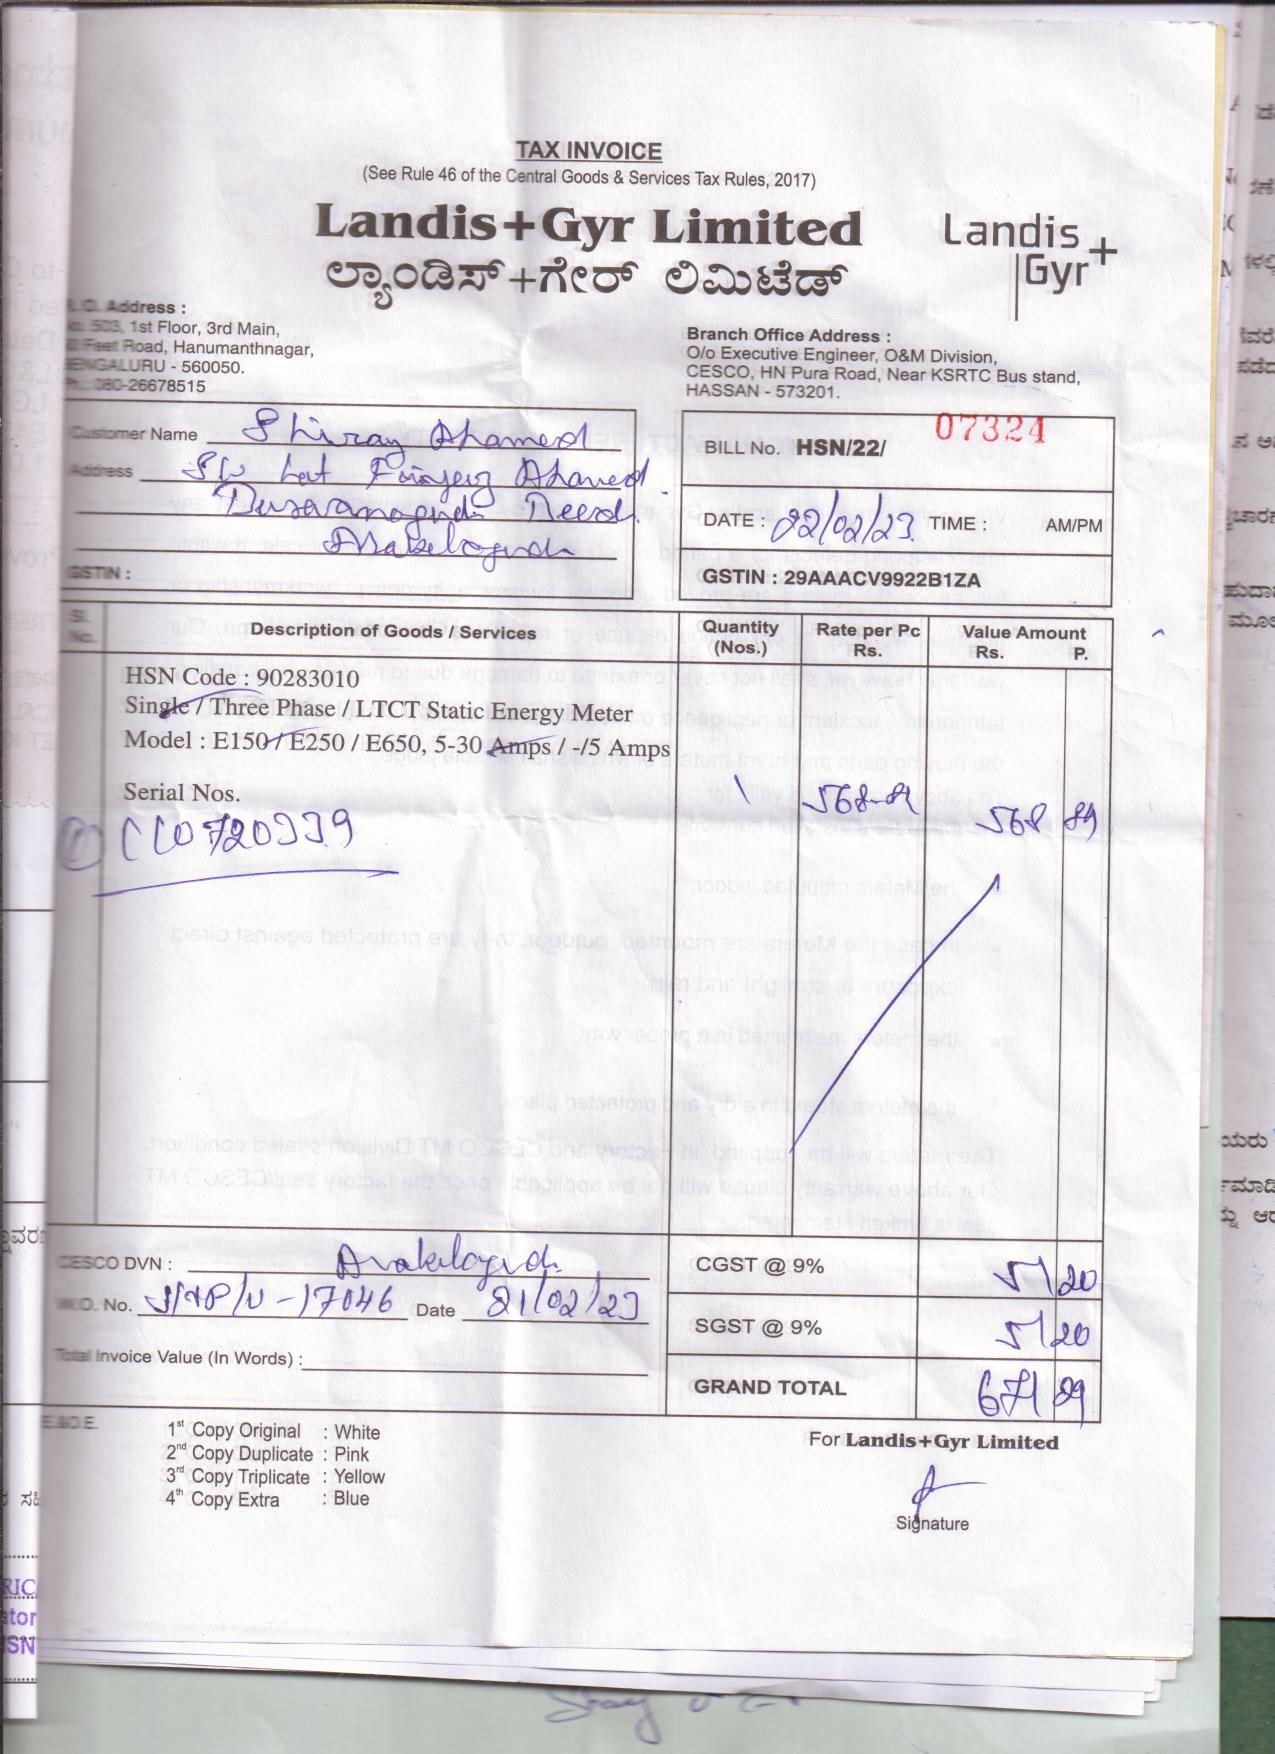 TAX INVOICE
(See Rule 46 of the Central Goods & Services Tax Rules, 2017)
Landis+Gyr Limited
ಲ್ಯಾಂಡಿಸ್+ಗೇರ್ ಲಿಮಿಟೆಡ್
Landis
Gyr+
Address :
503, 1st Floor, 3rd Main,
Feet Road, Hanumanthnagar,
BENGALURU - 560050.
Ph.: 080-26678515
Branch Office Address :
O/o Executive Engineer, O&M Division,
CESCO, HN Pura Road, Near KSRTC Bus stand,
HASSAN - 573201.
Customer Name Shiraz Ahamed
Address S/o Ahamed
Arakalagudu
GSTIN :
BILL No. HSN/22/ 07324
DATE : 22/02/23 TIME : AM/PM
GSTIN : 29AAACV9922B1ZA
Sl. No. Description of Goods / Services Quantity (Nos.) Rate per Pc Rs. Value Amount Rs. P.
HSN Code : 90283010
Single / Three Phase / LTCT Static Energy Meter
Model : E150 / E250 / E650, 5-30 Amps / -/5 Amps
Serial Nos.
1 568-89 568 89
CESCO DVN : Arakalagudu
W.O. No. 17046 Date 21/02/23
Total Invoice Value (In Words) :
CGST @ 9% 51 20
SGST @ 9% 51 20
GRAND TOTAL 671 29
E.&O.E.
1st Copy Original : White
2nd Copy Duplicate : Pink
3rd Copy Triplicate : Yellow
4th Copy Extra : Blue
For Landis+Gyr Limited
Signature